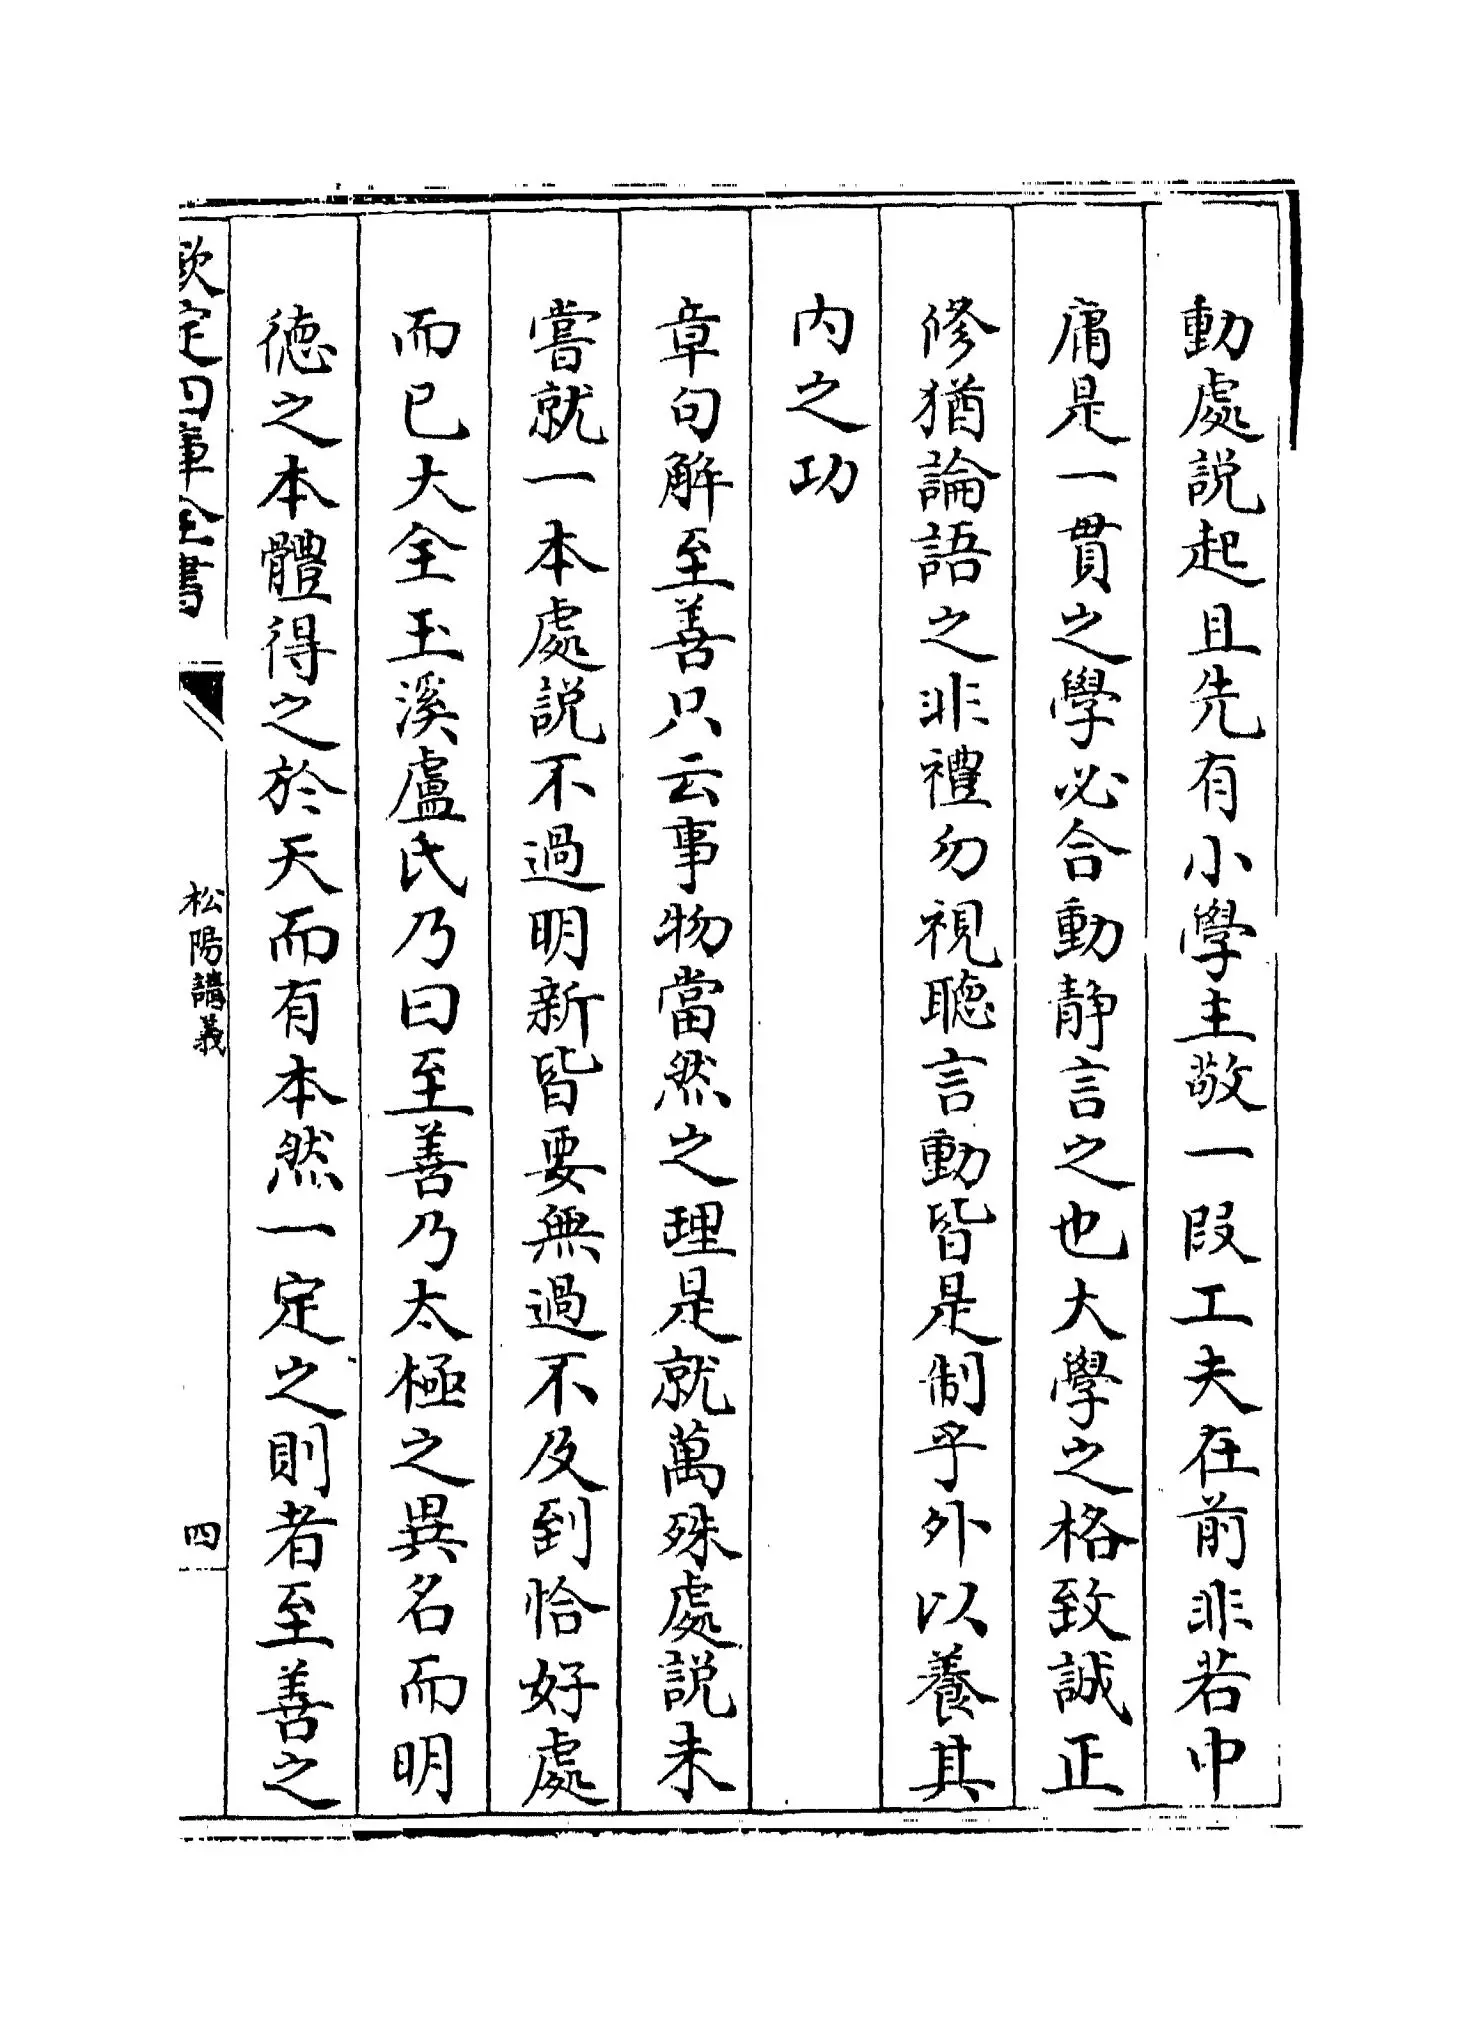 動處説起且先有小學主敬一段工夫在前非若中
庸是一貫之學必合動静言之也大學之格致誠正
修猶論語之非禮勿視聽言動皆是制乎外以養其
内之功
章句解至善只云事物當然之理是就萬殊處説未
嘗就一本處説不過明新皆要無過不及到恰好處
而已大全玉溪盧氏乃曰至善乃太極之異名而明
徳之本體得之於天而有本然一定之則者至善之
欽定四庫全書
松陽講義
四